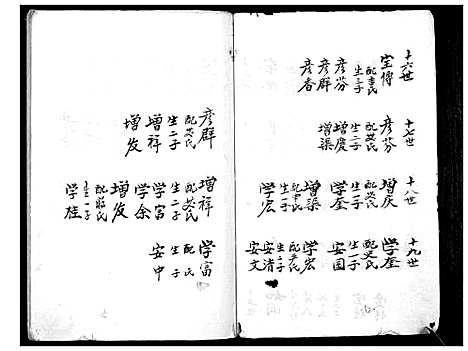 十六世
宝傳
配李氏
生三子
彦芬
彦群
彦香
十七世
彦芬
配
氏
生二子
增庆
增渠
十八世
增庆
配
氏
生一子
学奎
增渠
配李氏
生一子
学宏
十九世
学奎
配
氏
生一子
安国
学宏
配
氏
生二子
安清
安文
彦群
配
氏
生二子
增祥
增发
增祥
配
氏
生二子
学富
学余
增发
配
氏
生一子
学桂
学富
配氏
生子
安中